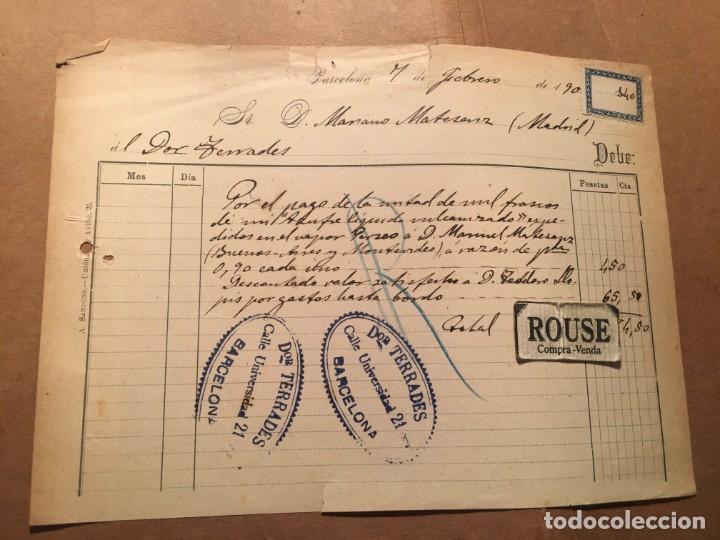 Barcelona 7 de Febrero de 190
340
Sr. D. Mariano Matesanz (Madrid)
al Dor Terrades Debe:
Mes Día Pesetas Cts.
Por el pago de la mitad de mil frascos
de mil "Azufre líquido vulcanizado" expe-
didos en el vapor Perseo á D. Manuel Matesanz
(Buenos-Aires y Montevideo), á razón de pta
0,90 cada uno 450
Descontado valor satisfecho á D. Teodoro
por gastos hasta bordo 65,50
total 4,50
ROUSE
Compra-Venda
DOR TERRADES
Calle Universidad 21
BARCELONA
DOR TERRADES
Calle Universidad 21
BARCELONA
Aviñó,
todocoleccion.net